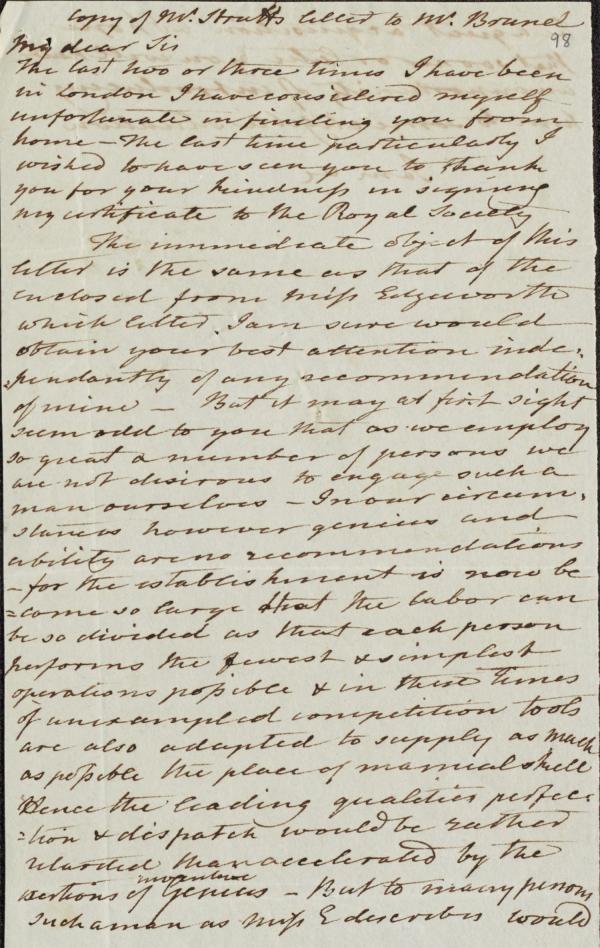 Copy of Mr. Strutts letter to Mr. Brunel
98
My dear Sir
The last two or three times I have been
in London I have considered myself
unfortunate in finding you from
home – The last time particularly I
wished to have seen you to thank
you for your kindness in signing
my certificate to the Royal Society
The immediate object of this
letter is the same as that of the
enclosed from Miss Edgeworth
which letter I am sure would
obtain your best attention inde=
=pendantly of any recommendation
of mine – But it may at first sight
seem odd to you that as we employ
so great a number of persons we
are not desirous to engage such a
man ourselves – In our circum=
stances however genius and
ability are no recommendations
– for the establishment is now be
=come so large that the labor can
be so divided as that each person
performs the fewest & simplest
operations possible & in these times
of unexampled competition tools
are also adapted to supply as much
as possible the place of manual skill
Hence the leading qualities perfec
=tion & dispatch would be rather
retarded than accelerated by the
inventive
exertions of Genius – But to many persons
such a man as Miss E describes would